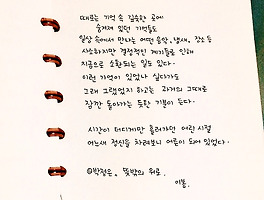 때로는 기억 속 깊숙한 곳에
숨겨져 있던 기억들도
일상 속에서 만나는 어떤 음악, 냄새, 장소 등
사소하지만 결정적인 계기들로 인해
지금으로 소환되는 일도 있다.
이런 기억이 있었나 싶다가도
그래 그랬었지 하고는 과거의 그때로
잠깐 돌아가는 듯한 기분이 든다.
시간이 더디게만 흘러가던 어린 시절
어느새 정신을 차려보니 어른이 되어 있었다.
몇 밤의 위로.
이불.